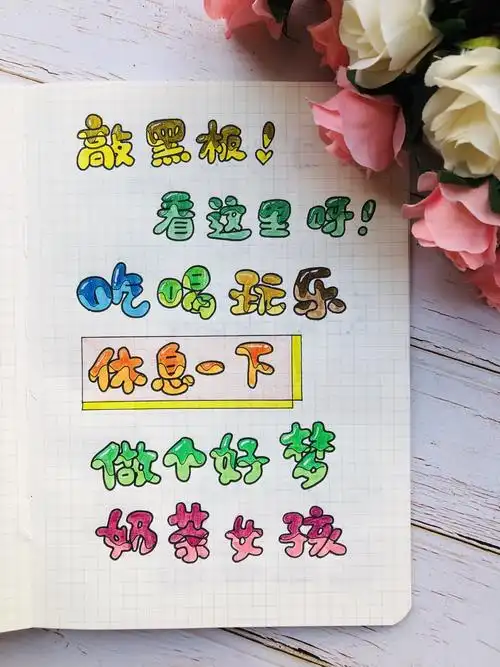 敲黑板!
看这里呀!
吃喝玩乐
休息一下
做个好梦
奶茶女孩